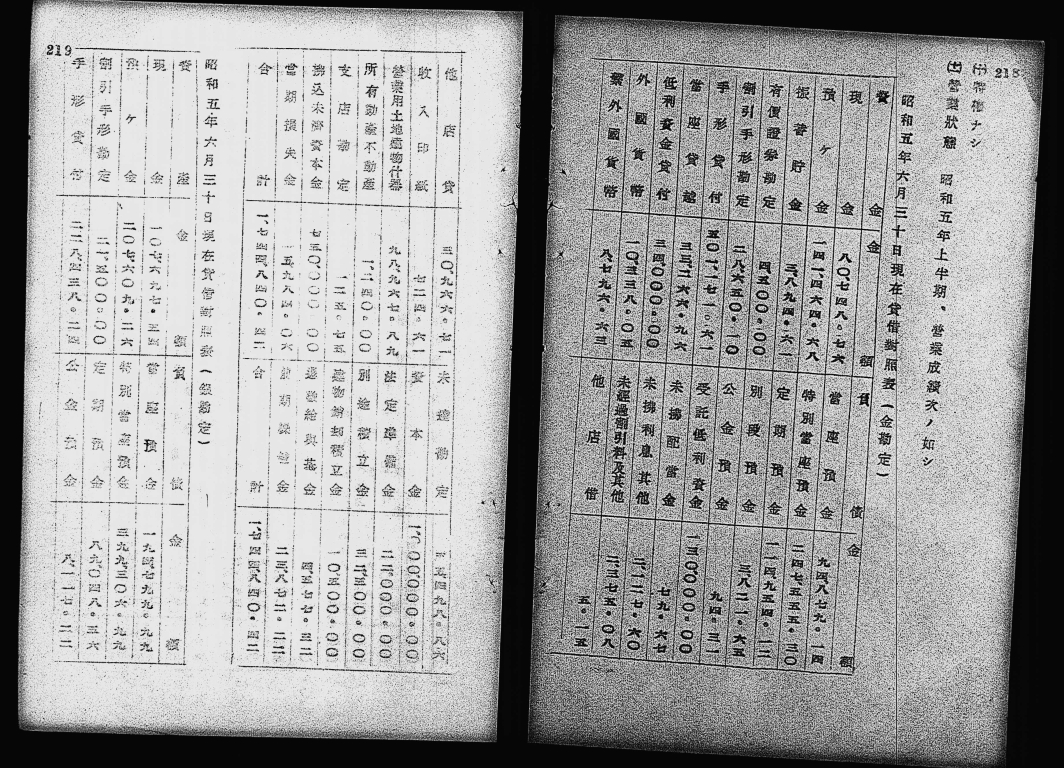 218
㈩ 特権ナシ
㈩ 營業狀態 昭和五年上半期、營業成績次ノ如シ
昭和五年六月三十日現在貸借對照表(金勘定)
資產 金額 負債 金額
現金 八〇、七四八。七六 當座預金 九四、八七九。一四
預ケ金 一四一、四六四。六八 特別當座預金 二四七、五五五。三〇
振替貯金 三、八九四。六一 定期預金 一一四、九五四。一二
有價證券勘定 四、五〇〇。〇〇 別段預金 三八、二一。六五
割引手形勘定 二八、六五〇。一〇 公金預金 九四。三一
手形貸付 五〇一、二七一。六一 受託低利資金 一三〇、〇〇〇。〇〇
當座貸越 三三、二六六。九六 未拂配當金 七九。六七
低利資金貸付 三四、〇〇〇。〇〇 未拂利息其他 二、二一七。六〇
外國貨幣 一〇、三三八。〇五 未經過割引料及其他 二、三七五。〇八
業外國貨幣 八、七九六。六三 他店借 五。一五
219
他店貸 三〇、九六六。七一 未達勘定 三五、四九八。八六
收入印紙 七二四。六一 資本金 一、〇〇〇、〇〇〇。〇〇
營業用土地建物什器 九八、九六七。八九 法定準備金 二二、〇〇〇。〇〇
所有動產不動產 一、二四〇。〇〇 別途積立金 三二、五〇〇。〇〇
支店勘定 一二五。七五 建物銷却積立金 一〇、五〇〇。〇〇
拂込未濟資本金 七五〇、〇〇〇。〇〇 退職給與基金 四、五七七。三二
當期損失金 一五、九八四。〇六 前期繰越金 二三、八七二。二二
合計 一、七四四、八四〇。四二 合計 一、七四四、八四〇。四二
昭和五年六月三十日現在貸借對照表(銀勘定)
資產 金額 負債 金額
現金 一〇、七六九七。五四 當座預金 一九四、七九九。九九
預ケ金 二〇七、六〇九。二六 特別當座預金 三九九、三〇六。九九
割引手形勘定 二一、五〇〇。〇〇 定期預金 八九、〇四八。三六
手形貸付 二二八、四三八。二四 公金預金 八、一一七。二二